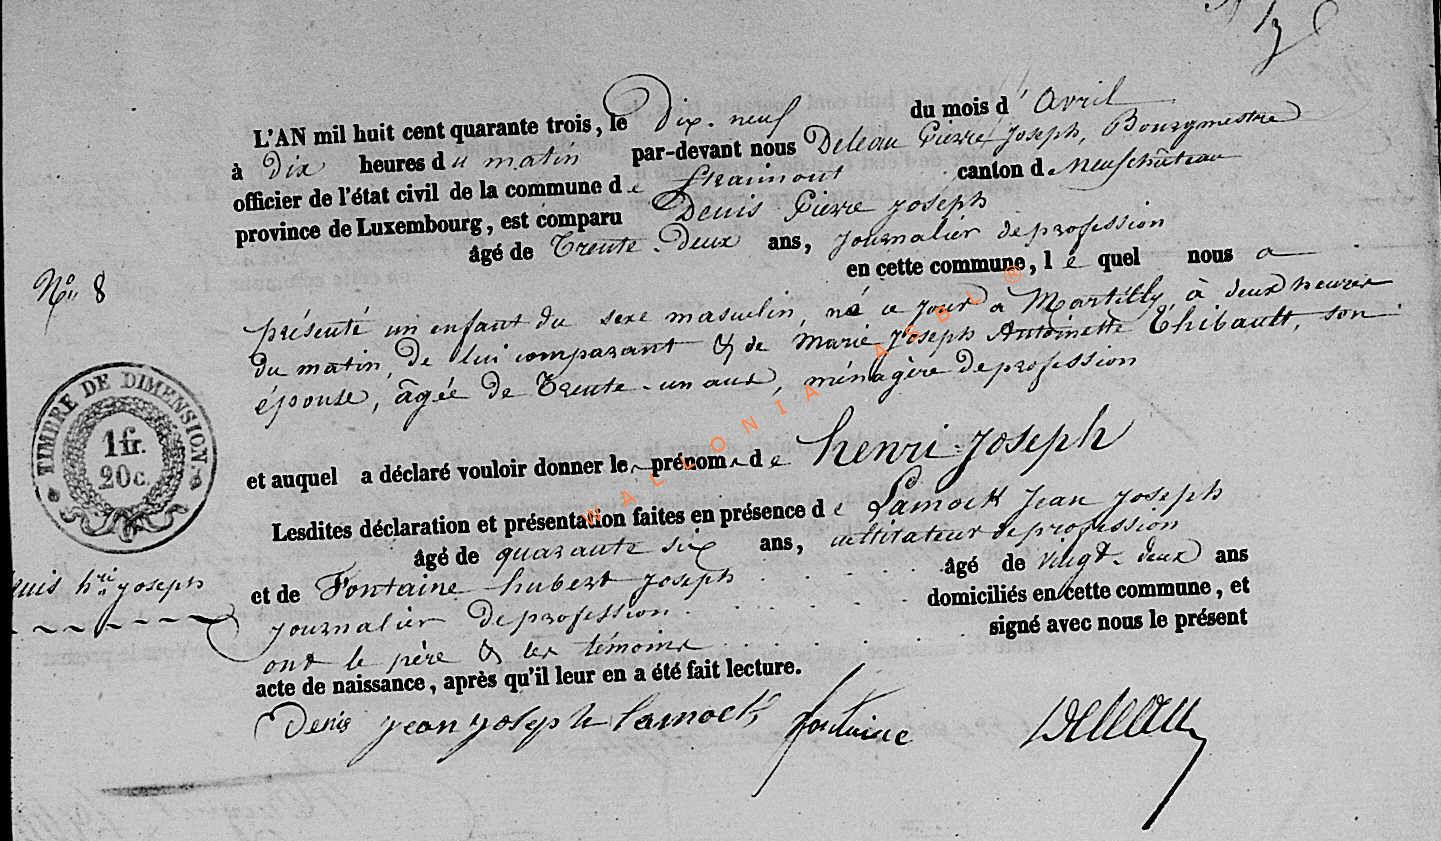 L'AN mil huit cent quarante trois, le Dix-neuf du mois d'Avril
à Dix heures du matin par-devant nous Deleau Pierre Joseph, Bourgmestre
officier de l'état civil de la commune de Straimont canton de Neufchâteau
province de Luxembourg, est comparu Denis Pierre Joseph
âgé de Trente-Deux ans, journalier de profession
en cette commune, lequel nous a
N° 8
présenté un enfant du sexe masculin, né ce jour à Martilly, à deux heures
du matin, de lui comparant & de Marie Joseph Antoinette Thibault, son
épouse, âgée de Trente-un ans, ménagère de profession
TIMBRE DE DIMENSION.
1 fr.
20 c.
et auquel a déclaré vouloir donner le prénom de henri-Joseph
Lesdites déclaration et présentation faites en présence de Lamock Jean Joseph
âgé de quarante six ans, cultivateur de profession
et de Fontaine hubert Joseph âgé de vingt-deux ans
hri joseph
journalier de profession domiciliés en cette commune, et
ont le père & les témoins signé avec nous le présent
acte de naissance, après qu'il leur en a été fait lecture.
Denis jean joseph lamock fontaine Deleau
WALLONIA ASBL ®